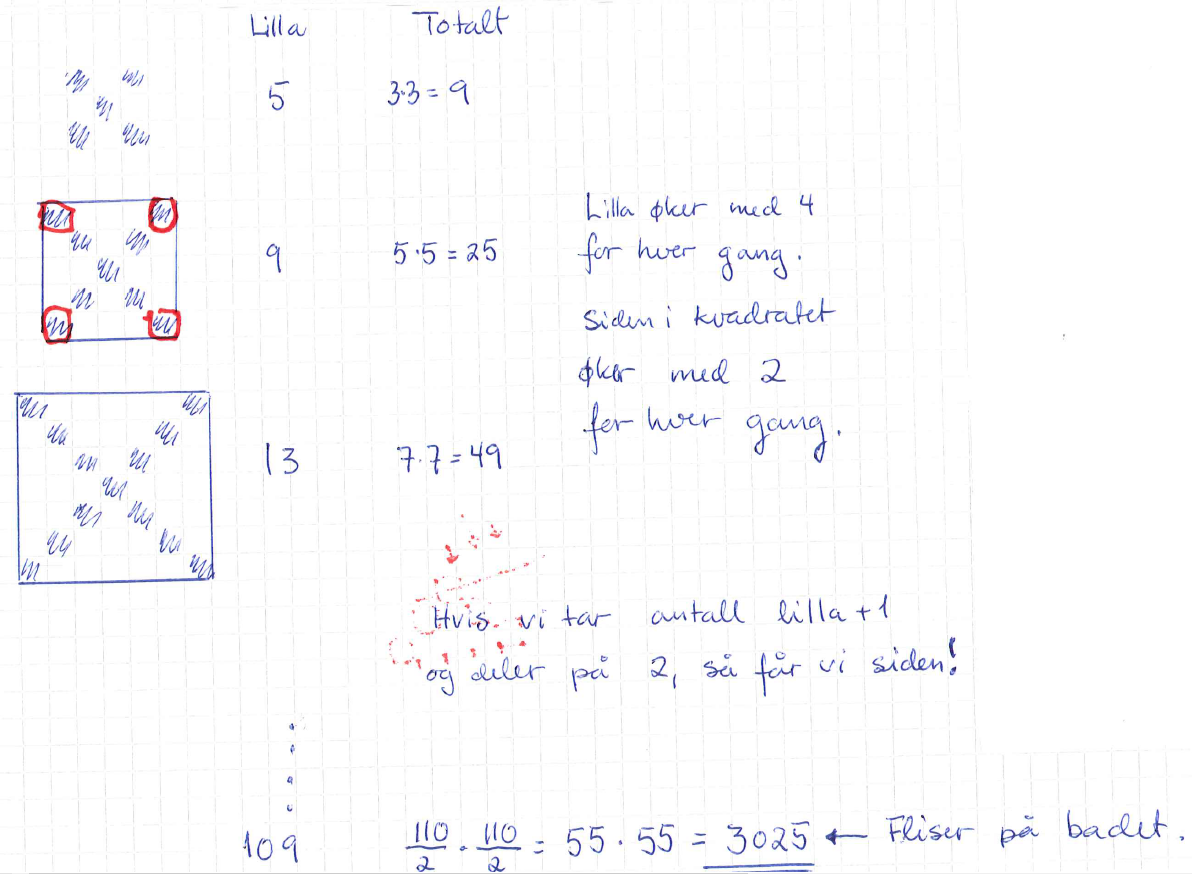 Lilla Totalt
5 3·3 = 9
9 5·5 = 25
Lilla øker med 4
for hver gang.
Siden i kvadratet
øker med 2
for hver gang.
13 7·7 = 49
Hvis vi tar antall lilla + 1
og deler på 2, så får vi siden!
109 110/2 · 110/2 = 55 · 55 = 3025 ← Fliser på badet.